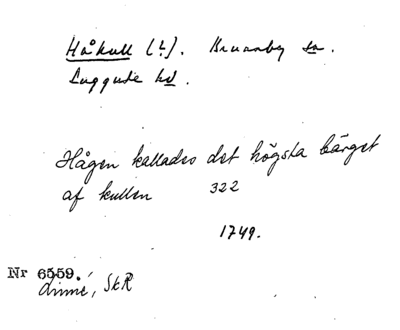 Håkull (?). Brunnby sn.
Luggude hd.
Hågen kallades det högsta bärget
af kullen 322
1749.
Nr 6559.
Linné, SkR